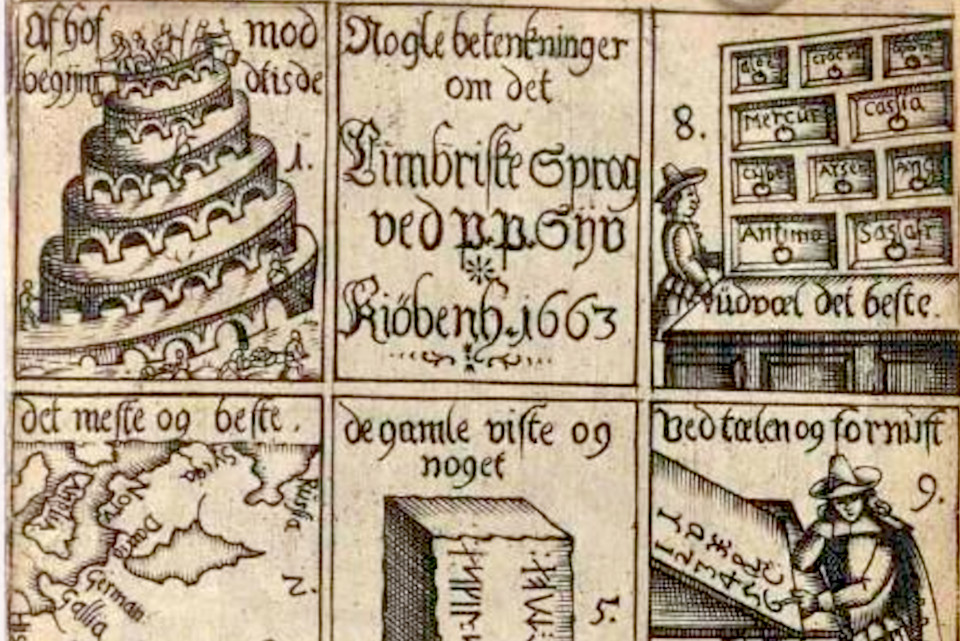 Af hof mod
begijnt dtisde
1.
Nogle betenkninger
om det
Cimbriske Sprog
ved P. P. Syv
Kiöbenh. 1663
8.
Crocus
Mercur
Cassia
Arsen
Antimo
Sasafr
üdvæl det beste.
det meste og beste.
Svega
Russa
Norv
Dania
Anglia
German
Gallia
2.
de gamle viste og
noget
5.
Ved tælen og fornuft
9.